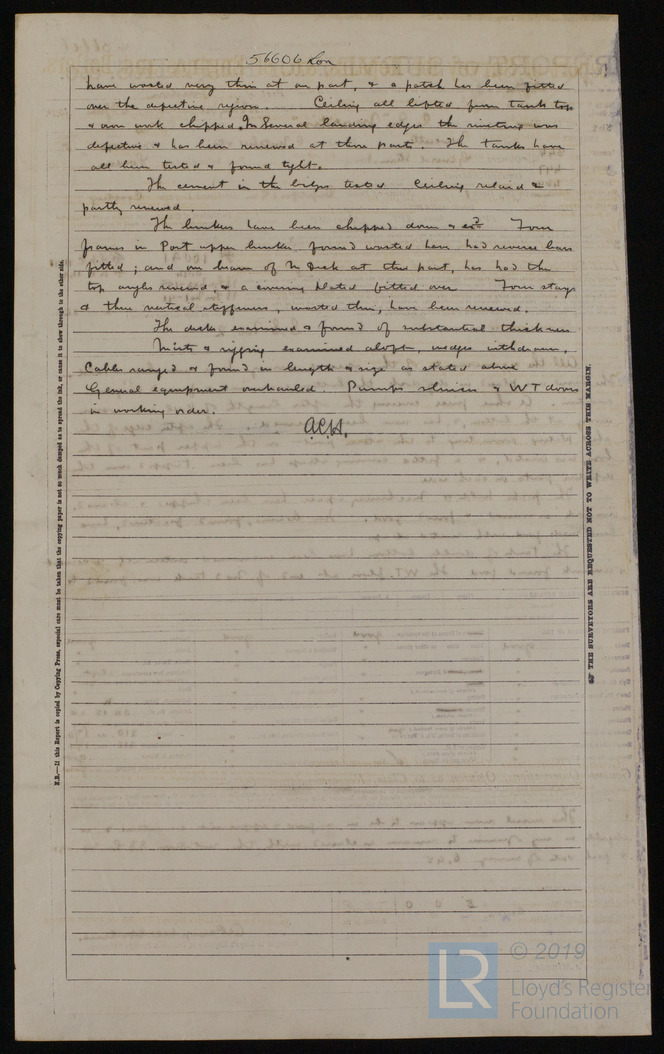 56606 Lon
have wasted very thin at one part, & a patch has been fitted
over the defective region. Ceiling all lifted from tank top
& iron work chipped. In Several landing edges the riveting was
defective & has been renewed at those parts. The tanks have
all been tested & found tight.
The cement in the bilges tested Ceiling relaid &
partly renewed.
The bunkers have been chipped down & exd Four
frames in Port upper bunker found wasted have had reverse bars
fitted; and one beam of M Deck at this part, has had the
top angles renewed, & a covering plate fitted over Four stays
& three vertical stiffeners, wasted thin, have been renewed.
The decks examined & found of substantial thickness
Masts & rigging examined aloft, wedges withdrawn.
Cables ranged & found in length & size as stated above
General equipment overhauled. Pumps sluices & WT doors
in working order.
A.C.H.
N.B.—If this Report is copied by Copying Press, especial care must be taken that the copying paper is not so much damped as to spread the ink, or cause it to show through to the other side.
THE SURVEYORS ARE REQUESTED NOT TO WRITE ACROSS THIS MARGIN.
LR
© 2019
Lloyd's Register
Foundation